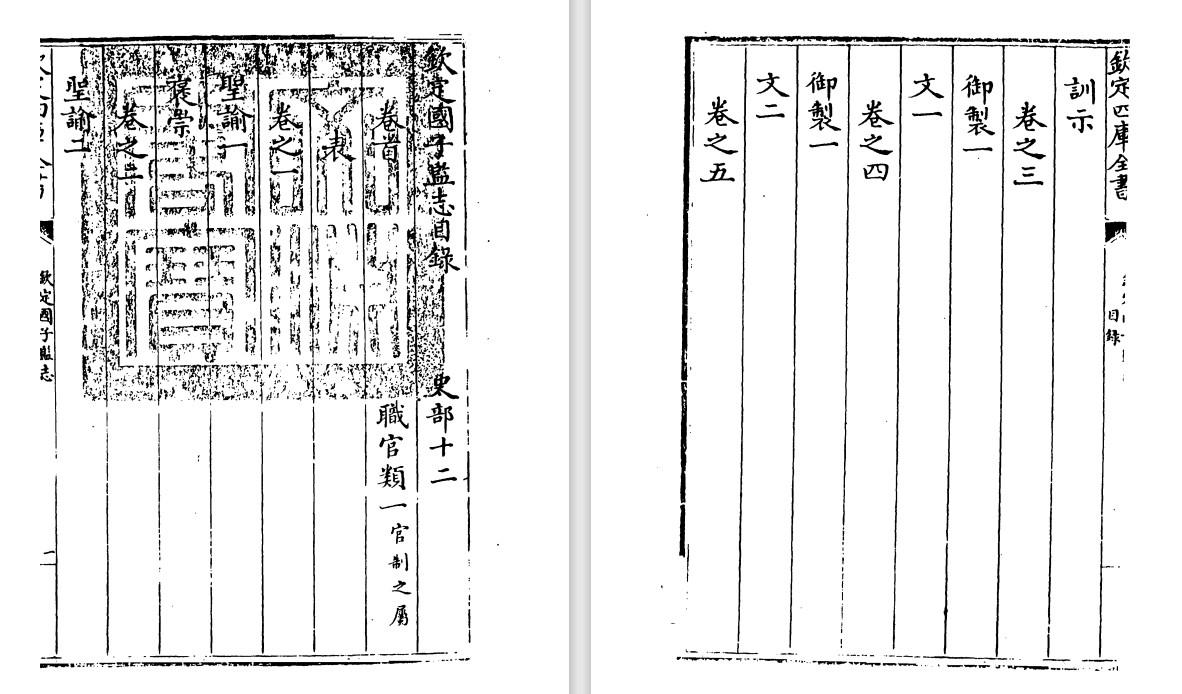 欽定國子監志目錄 史部十二
卷首 職官類一官制之屬
表
卷之一
聖諭一
褒崇
卷之二
聖諭二
欽定國子監志
二
文淵閣寶
欽定四庫全書
目錄
訓示
卷之三
御製一
文一
卷之四
御製一
文二
卷之五